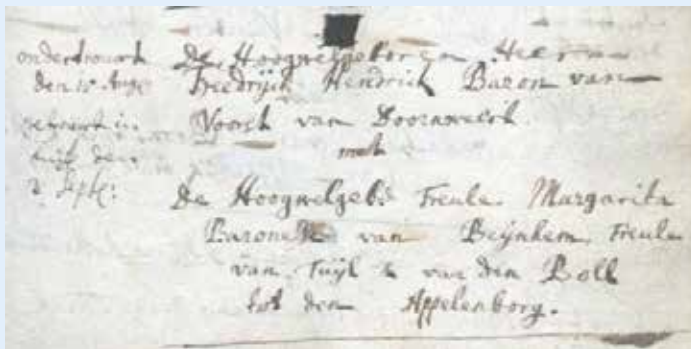 ondertrouwt
den 10 Aug:
getrouwt in
tuijl den
2 Sept:
De Hoogwelgeboren Heere
Freedrijck Hendrick Baron van
Voorst van Doorenweert.
met
De Hoogwelgeb: Freule Margarita
Baronesse van Beijnhem, Freule
van Tuijl & van den Boll
tot den Appelenborg.